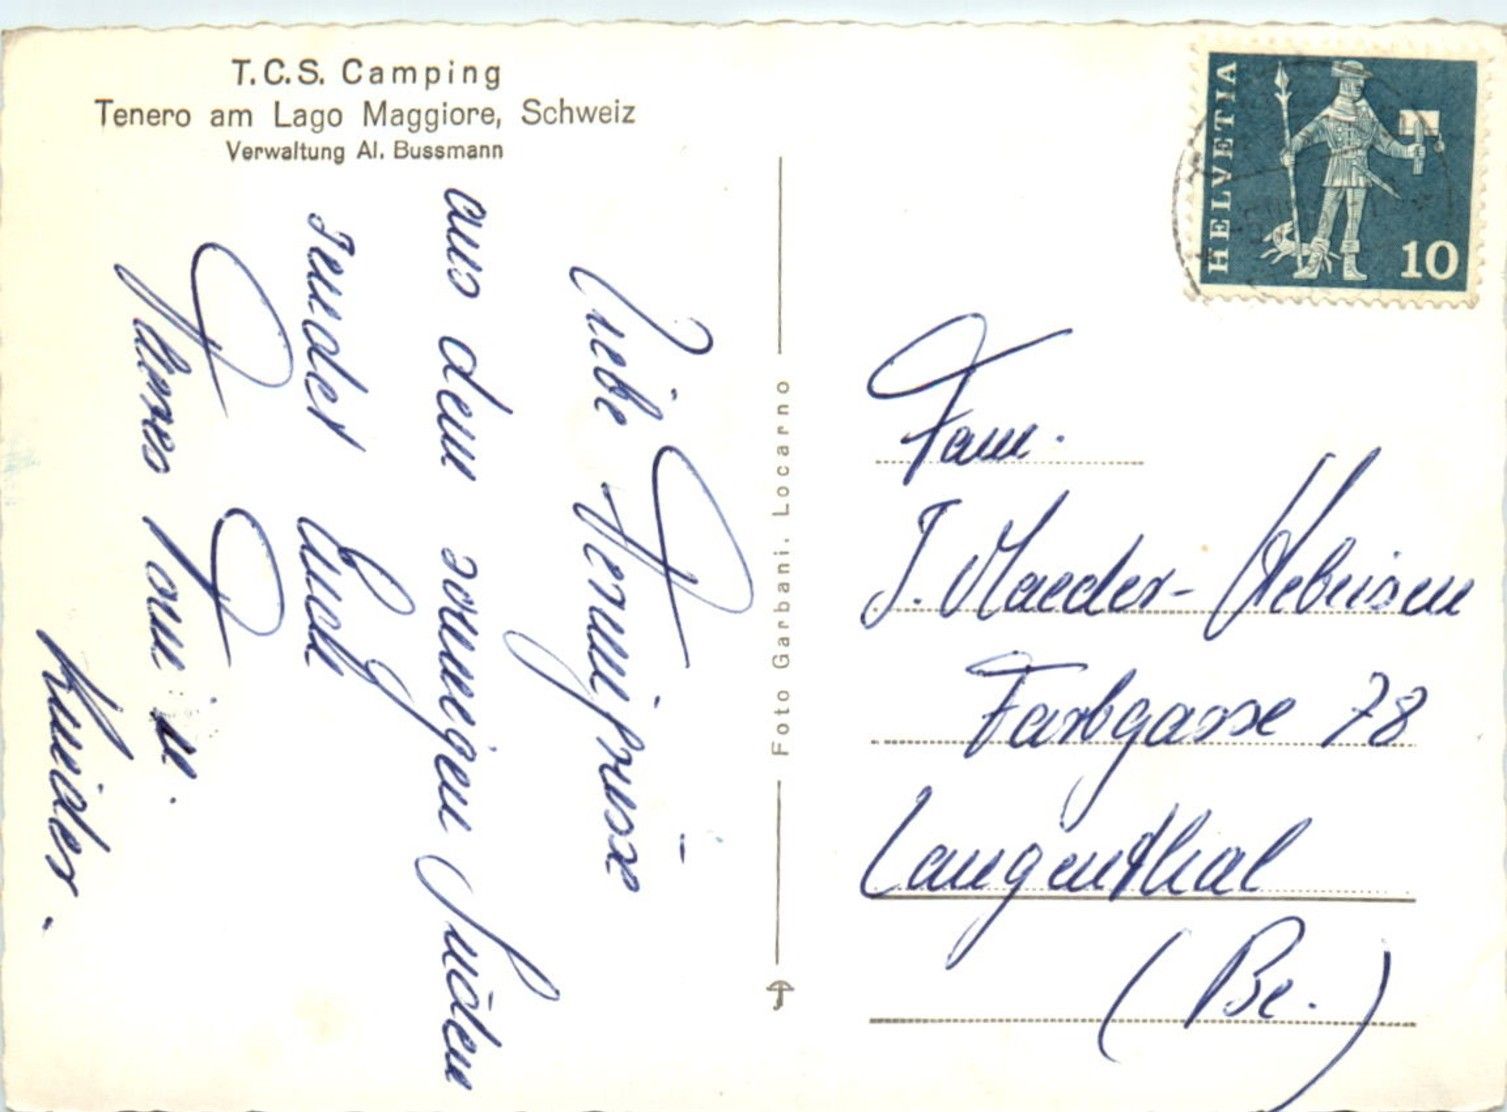 T.C.S. Camping
Tenero am Lago Maggiore, Schweiz
Verwaltung Al. Bussmann
Liebe Feriengrüsse
aus dem sonnigen Süden
sendet Euch
Fam. u.
Kinder.
Foto Garbani, Locarno
HELVETIA
10
Fam.
J. Maeder-Hebeisen
Farbgasse 78
Langenthal
(Be.)